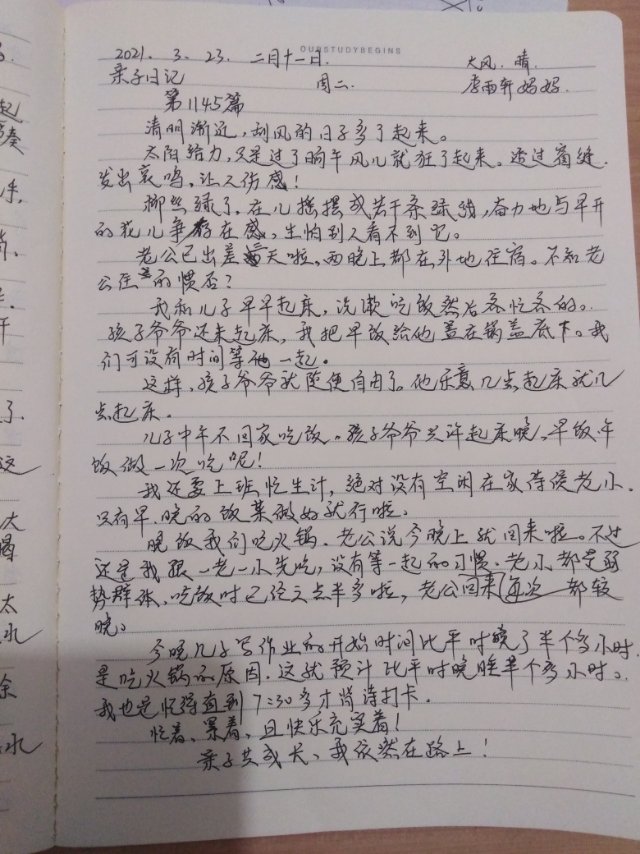 OURSTUDYBEGINS
2021. 3. 23. 二月十一日. 大风. 晴.
亲子日记 周二. 李雨轩妈妈.
第1145篇
清明渐近,刮风的日子多了起来。
太阳给力,只是过了晌午风儿就狂了起来。透过窗缝
发出哀鸣,让人伤感!
柳丝绿了,在儿摇摆或若干条绿线,奋力地与早开
的花儿争存在感,生怕别人看不到它。
老公已出差天啦,两晚上都在外地住宿。不知老
公住的惯否?
我和儿子早早起床,洗漱吃饭然后各忙各的。
孩子爷爷还未起床,我把早饭给他盖在锅盖底下。我
们可没有时间等他一起。
这样,孩子爷爷就随便自由了。他乐意几点起床就几
点起床。
儿子中午不回家吃饭。孩子爷爷也许起床晚,早饭午
饭做一次吃呢!
我还要上班忙生计,绝对没有空闲在家待侯老小
只有早.晚的饭菜做好就行啦。
晚饭我们吃火锅.老公说今晚上就回来啦。不过
还是我跟一老一小先吃,没有等一起的习惯.老小都是弱
势群体,吃饭时已经六点半多啦,老公回来每次都较
晚。
今晚儿子写作业的开始时间比平时晚了半个多小时.
是吃火锅的原因.这就预计比平时晚睡半个多小时。
我也是忙得直到7:30多才背诗打卡.
忙着、累着、且快乐充实着!
亲子共成长、我依然在路上!